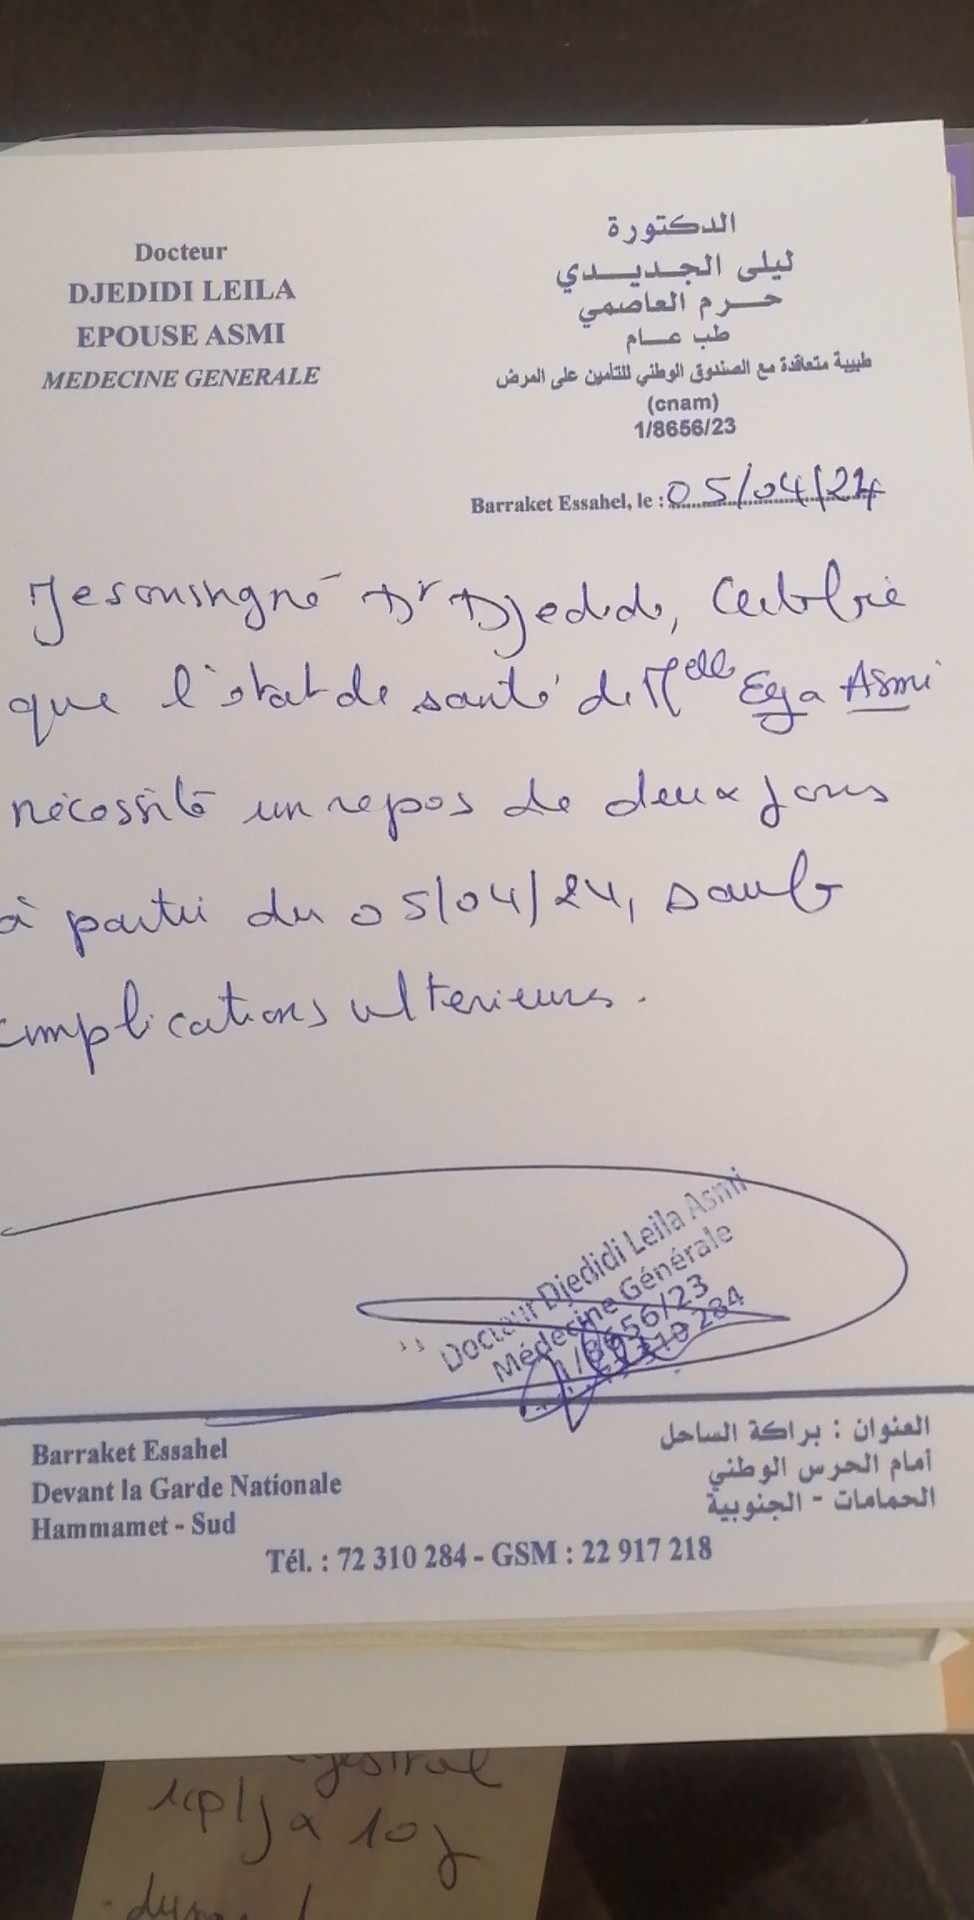 Docteur
DJEDIDI LEILA
EPOUSE ASMI
MEDECINE GENERALE
الدكتورة
ليلى الجديدي
حرم العاصمي
طب عام
طبيبة متعاقدة مع الصندوق الوطني للتأمين على المرض
(cnam)
1/8656/23
Barraket Essahel, le : 05/04/24
Je sousigné Dr Djedidi, Certifie
que l'état de santé de Melle Eya Asmi
nécessite un repos de deux jours
à partir du 05/04/24, sauf
complications ulterieures.
Docteur Djedidi Leila Asmi
Médecine Générale
1/8656/23
310 284
Barraket Essahel
Devant la Garde Nationale
Hammamet - Sud
العنوان : براكة الساحل
أمام الحرس الوطني
الحمامات - الجنوبية
Tél. : 72 310 284 - GSM : 22 917 218
1cp/j x 10j